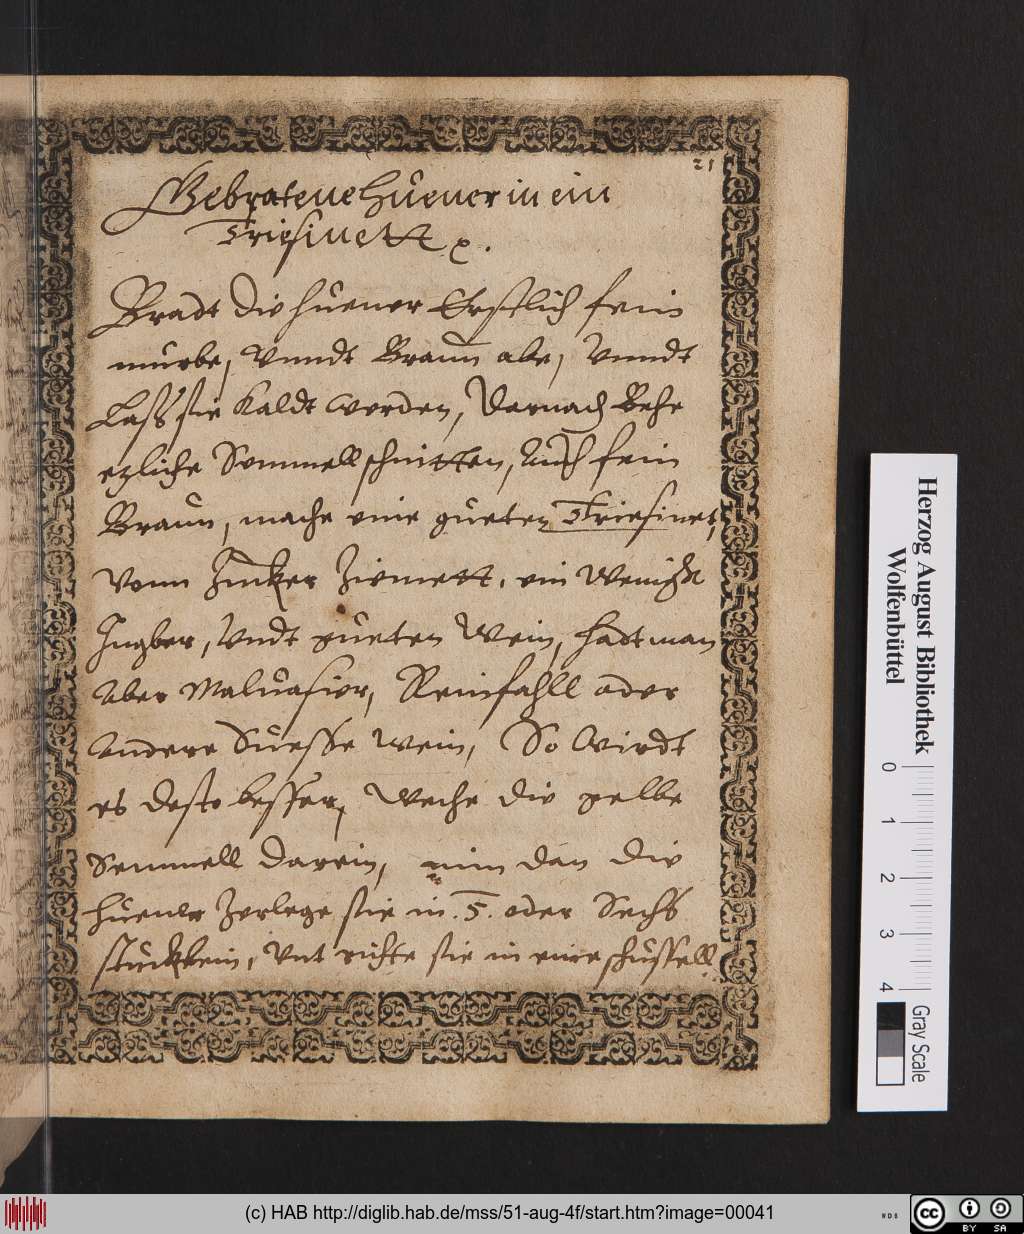 21
Gebratene Huener in ein
Triesinett
Bradt die huener Erstlich fein
murbe, Vnndt Braun abe, Vnndt
Lass sie Kaldt werden, Darnach Behe
etzliche Semmell schnitten, Auch fein
Braun, mache eine gueten Triesinet,
Vonn Zucker Ziemett, ein Wenigk
Ingber, Vndt gueten Wein, hadt man
Aber Maluasier, Reinfahll oder
Andere Suesse wein, So Wirdt
es desto besser, Weche die gelbe
Semmell darein, nim dan die
huener Zerlege sie in .5. oder Sechs
stuckhein, Vnt richte sie in eine schussell
Herzog August Bibliothek
Wolfenbüttel
0 1 2 3 4
Gray Scale
(c) HAB http://diglib.hab.de/mss/51-aug-4f/start.htm?image=00041
WDB
cc BY SA